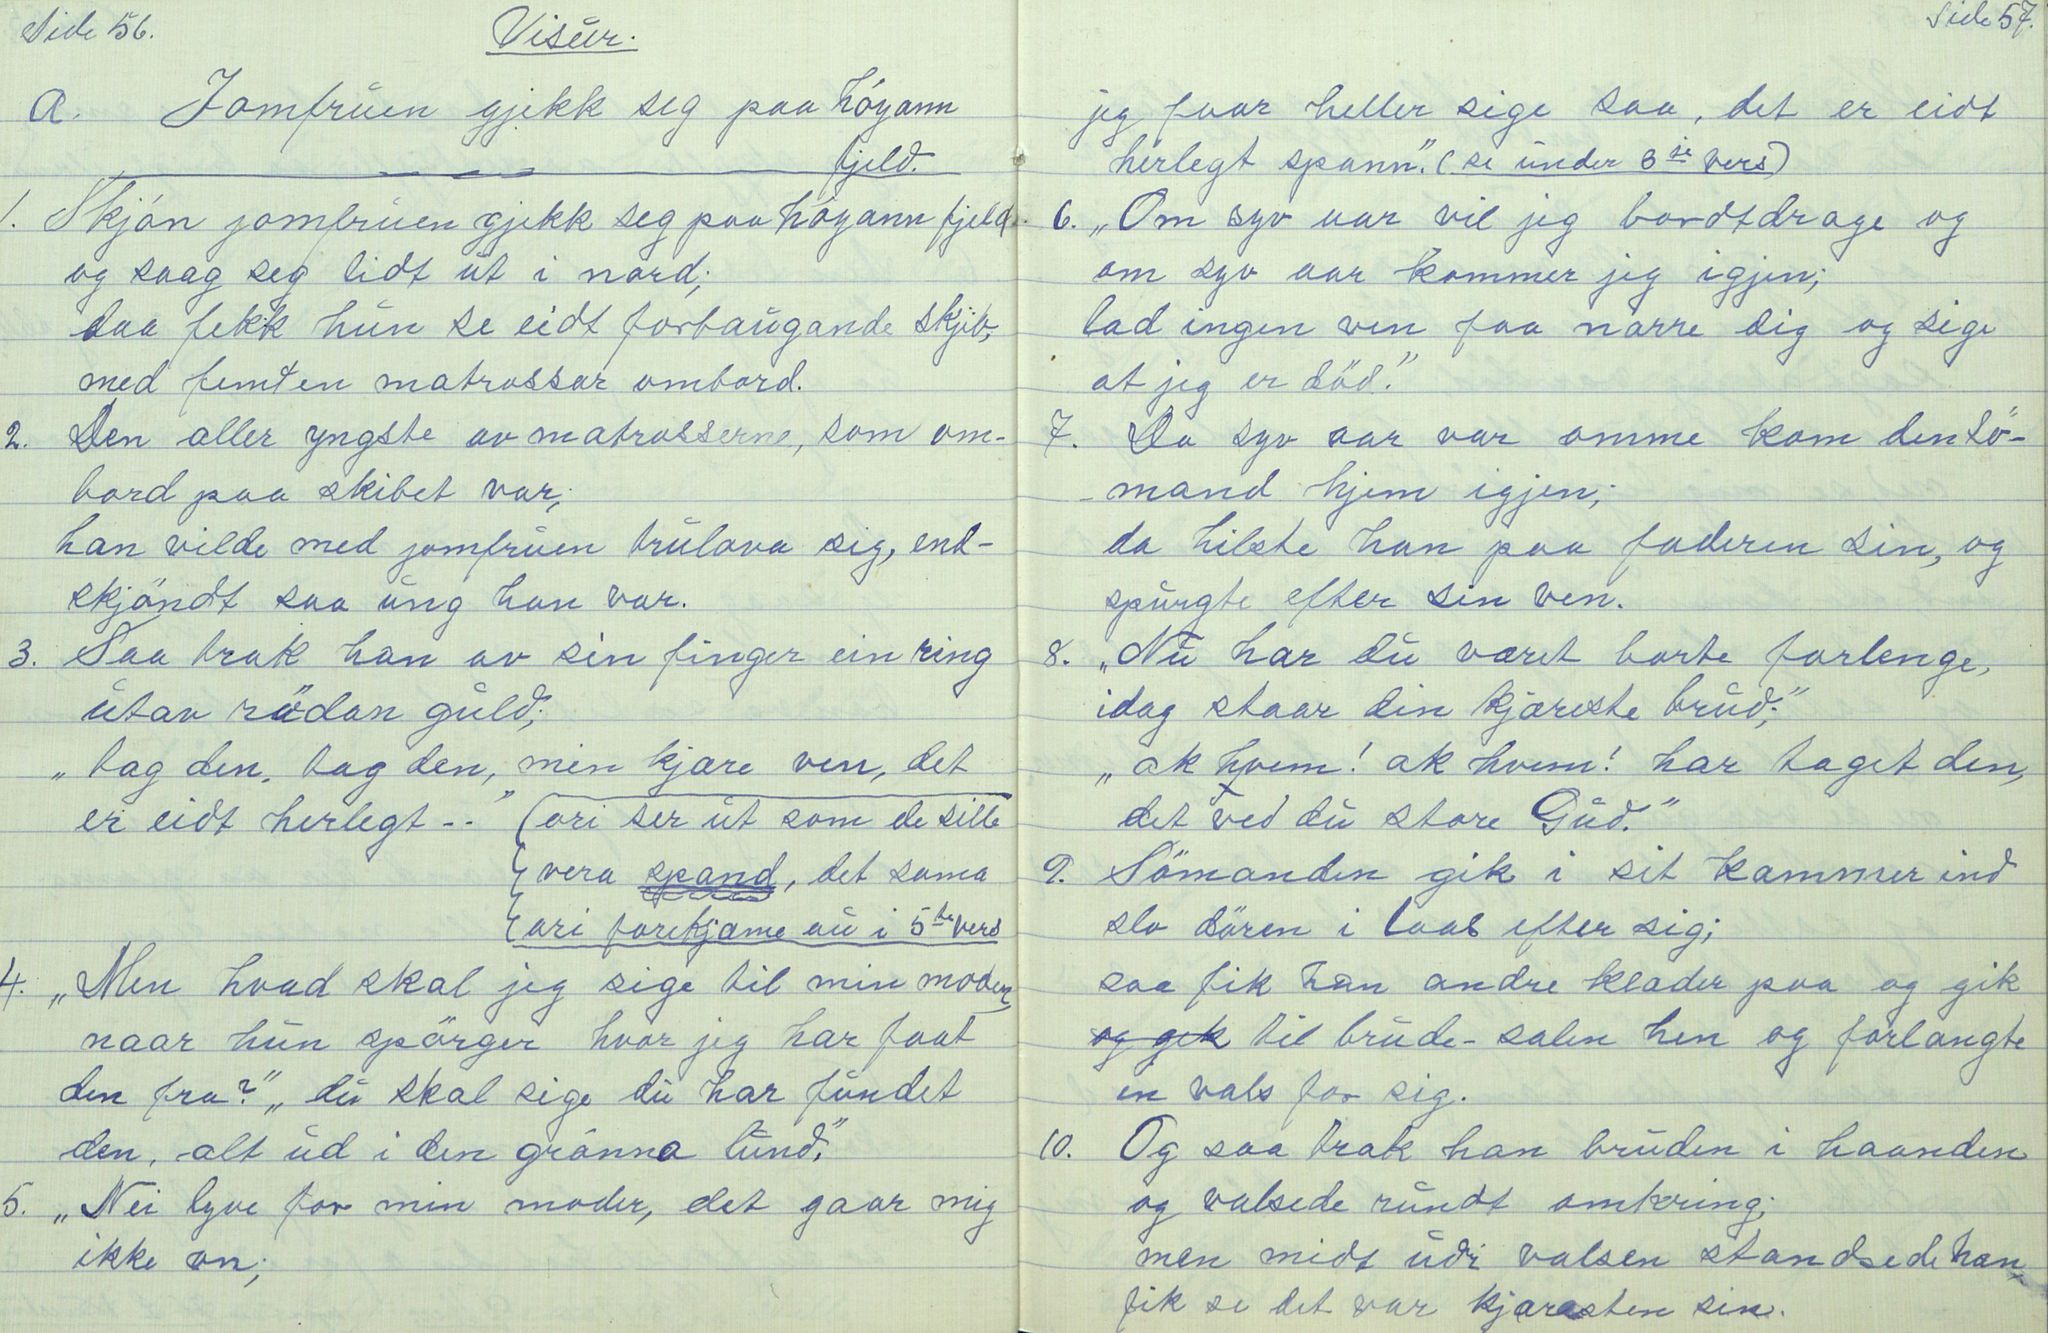 Side 56.
Visúr.
a. Jomfrúen gjekk seg paa höyann
fjeld.
1. Skjön jomfrúen gjekk seg paa höyann fjeld
og saag seg lidt út i nord;
daa fekk hún se eidt forbaúgande skjib,
med femten matrossar ombord.
2. Den aller yngste av matrosserne, som om-
bord paa skibet var;
han vilde med jomfrúen trúlova sig, end-
skjöndt saa úng han var.
3. Saa trak han av sin finger ein ring
útav rödan gúld;
„tag den, tag den, min kjære ven, det
er eidt herlegt -." (ori ser út som de sille
vera spand, det sama
ori forekjame aú i 5te vers
4. „Men hvad skal jeg sige til min moder,
naar hún spörger hvor jeg har faat
den fra?" „dú skal sige dú har fúndet
den, alt úd i den grönna lúnd."
5. „Nei lyve for min moder, det gaar mig
ikke an;
Side 57.
jeg faar heller sige saa, det er eidt
herlegt spann." (se únder 3je vers)
6. „Om syv aar vil jeg bordtdrage og
om syv aar kommer jeg igjen;
lad ingen ven faa narre dig og sige
at jeg er död."
7. Da syv aar var omme kom den sö-
mand hjem igjen;
da hilste han paa faderen sin, og
spúrgte efter sin ven.
8. „Nú har dú været borte forlenge,
idag staar din kjæreste brúd;"
„ak hvem! ak hvem! har taget den,
det ved dú store Gúd."
9. Sömanden gik i sit kammer ind
slo dören i laas efter sig;
saa fik han andre klæder paa og gik
og gik til brúde-salen hen og forlangte
en vals for sig.
10. Og saa trak han brúden i haanden
og valsede rúndt omkring;
men midt údi valsen standsede han
fik se det var kjæresten sin.